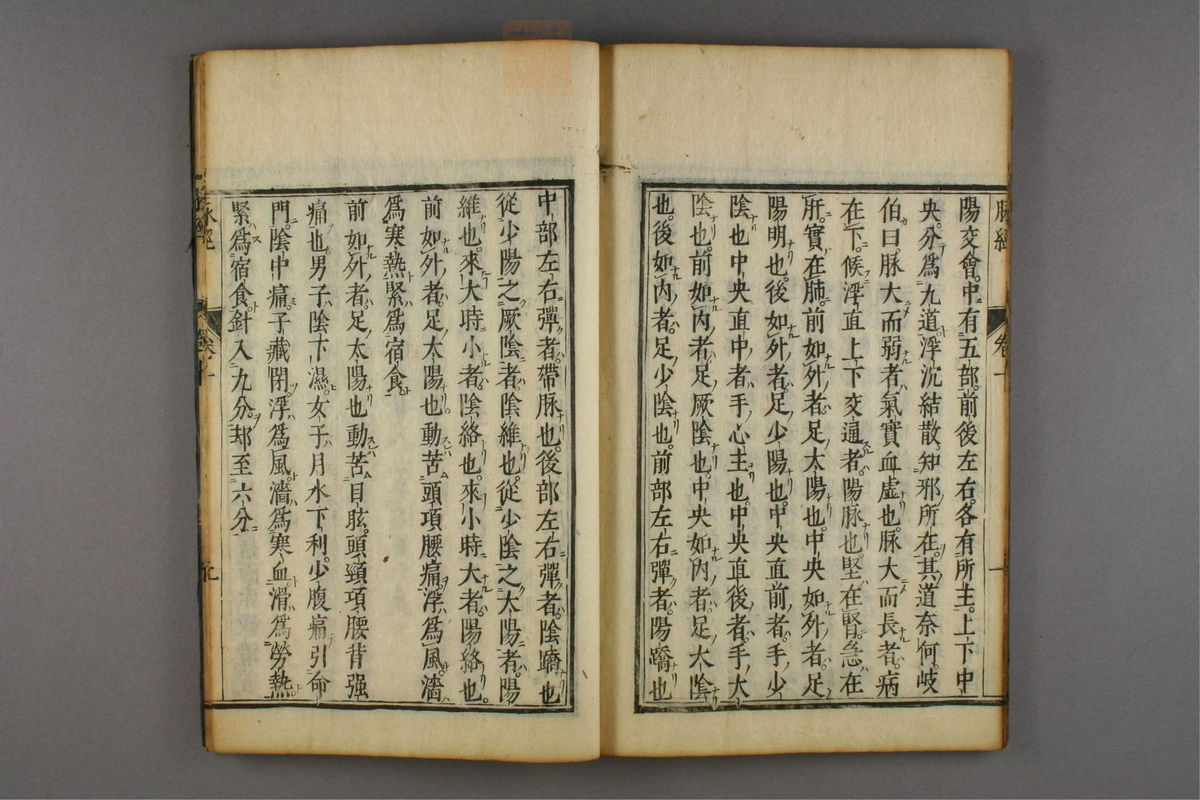 脉經
卷十
陽交會中有五部前後左右各有所主上下中
央分爲九道浮沉結散知邪所在其道奈何岐
伯曰脉大而弱者氣實血虛也脉大而長者病
在下候浮直上下交通者陽脉也堅在腎急在
肝實在肺前如外者足太陽也中央如外者足
陽明也後如外者足少陽也中央直前者手少
陰也中央直中者手心主也中央直後者手太
陰也前如内者足厥陰也中央如内者足太陰
也後如内者足少陰也前部左右彈者陽蹻也
中部左右彈者帶脉也後部左右彈者陰蹻也
從少陽之厥陰者陰維也從少陰之太陽者陽
維也來大時小者陰絡也來小時大者陽絡也
前如外者足太陽也動苦頭項腰痛浮爲風濇
爲寒熱緊爲宿食
前如外者足太陽也動苦目眩頭頸項腰背强
痛也男子陰下濕女子月水不利少腹痛引命
門陰中痛子藏閉浮爲風濇爲寒血滑爲勞熱
緊爲宿食針入九分却至六分
脉經
卷十